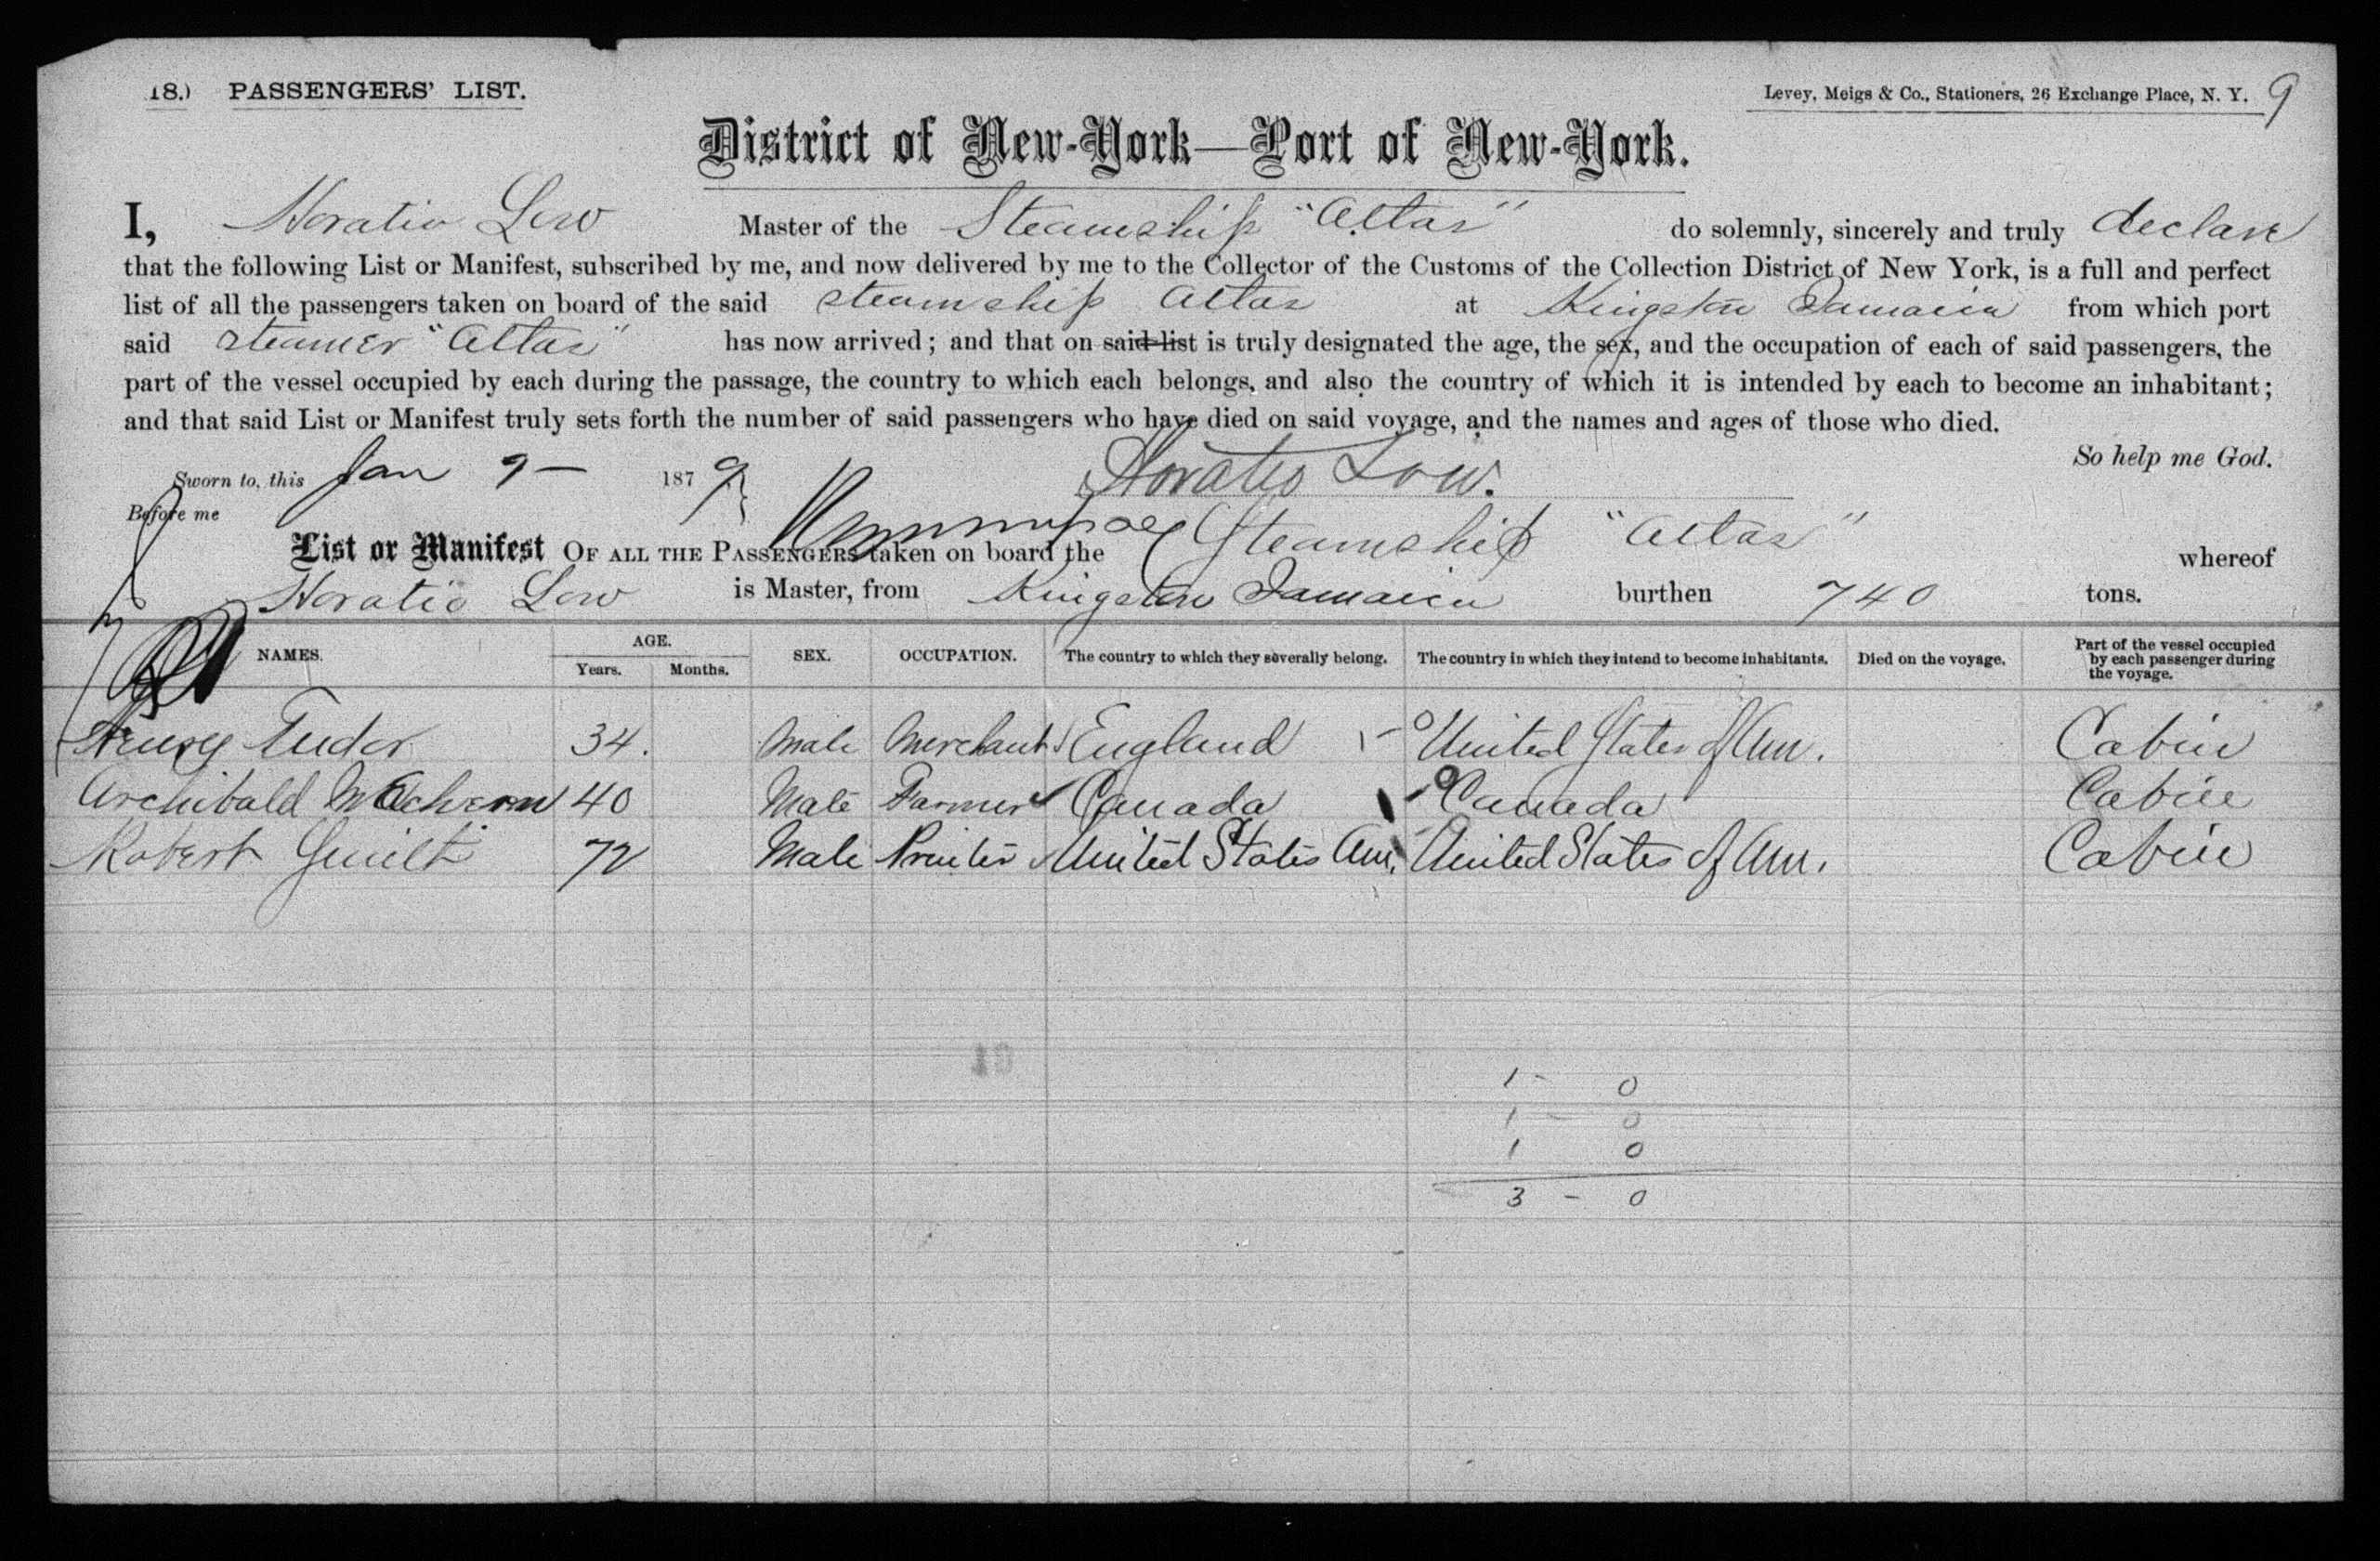 18.) PASSENGERS' LIST.
Levey, Meigs & Co., Stationers, 26 Exchange Place, N. Y. 9
District of New-York—Port of New-York.
I, Horatio Low Master of the Steamship "Altas" do solemnly, sincerely and truly declare
that the following List or Manifest, subscribed by me, and now delivered by me to the Collector of the Customs of the Collection District of New York, is a full and perfect
list of all the passengers taken on board of the said steamship Altas at Kingston Jamaica from which port
said steamer "Altas" has now arrived; and that on said list is truly designated the age, the sex, and the occupation of each of said passengers, the
part of the vessel occupied by each during the passage, the country to which each belongs, and also the country of which it is intended by each to become an inhabitant;
and that said List or Manifest truly sets forth the number of said passengers who have died on said voyage, and the names and ages of those who died.
So help me God.
Sworn to, this Jan 9 – 1879 Horatio Low.
Before me
List or Manifest OF ALL THE PASSENGERS taken on board the Steamship "Altas" whereof
Horatio Low is Master, from Kingston Jamaica burthen 740 tons.
NAMES. AGE. Years. Months. SEX. OCCUPATION. The country to which they severally belong. The country in which they intend to become inhabitants. Died on the voyage. Part of the vessel occupied by each passenger during the voyage.
Henry Tudor 34. Male Merchant England United States of Am. Cabin
Archibald 40 Male Farmer Canada Canada Cabin
Robert 72 Male Printer United States Am. United States of Am. Cabin
1 - 0
1 - 0
1 0
3 - 0